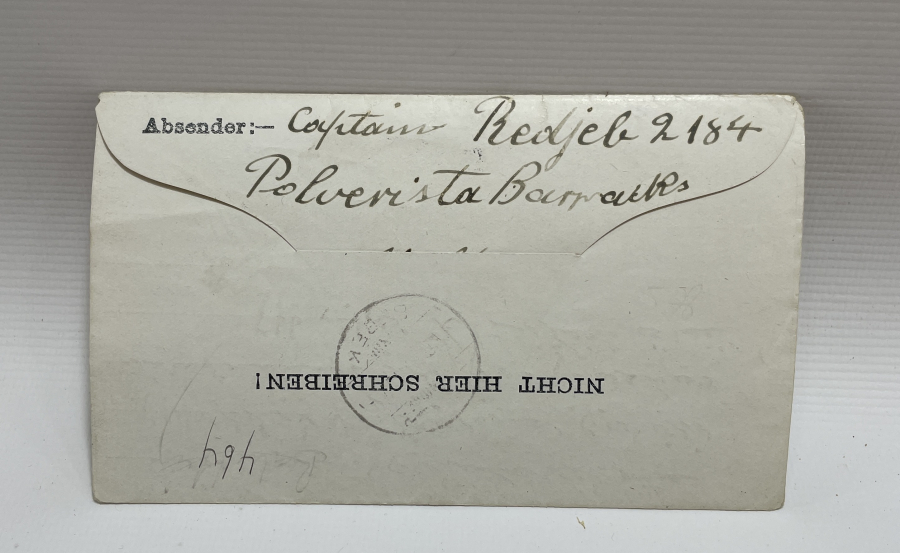 Absender:— Captain Redjeb 2184
Polverista Barracks
NICHT HIER SCHREIBEN!
464